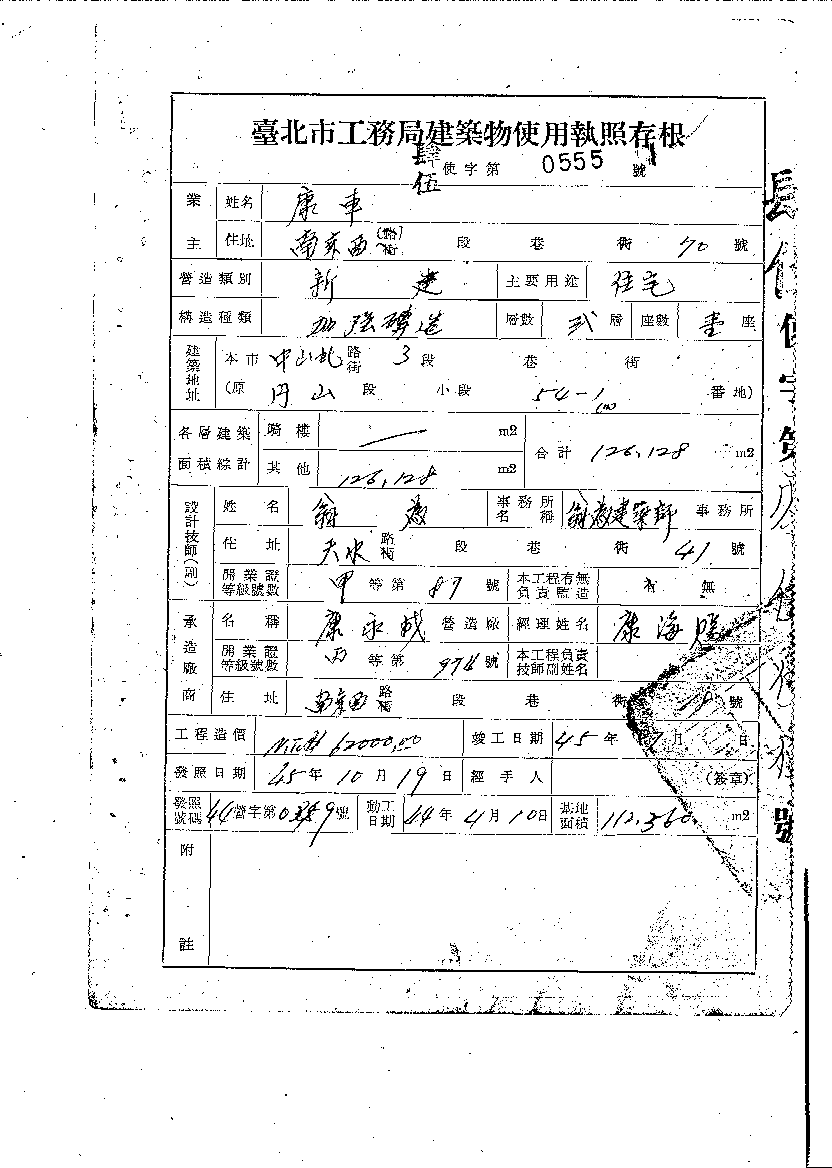 臺北市工務局建築物使用執照存根
肆伍使字第 0555 號
業主 姓名 康車
住址 南京西(路)街 段 巷 衖 70 號
營造類別 新建 主要用途 住宅
構造種類 加強磚造 層數 弍 層 座數 壹 座
建築地址 本市 中山北 路街 3 段 巷 街
(原 円山 段 小段 54-1 番地)
各層建築面積綜計 騎樓 — m2 合計 126.128 m2
其他 126.128 m2
設計技師(副) 姓名 翁為 事務所名稱 翁為建築師 事務所
住址 天水 路街 段 巷 衖 41 號
開業證等級號數 甲 等第 87 號 本工程有無負責監造 有 無
承造廠商 名稱 康永成 營造廠 經理姓名 康海
開業證等級號數 丙 等第 974 號 本工程負責技師副姓名
住址 南京西 路街 段 巷 衖 號
工程造價 62000.00 竣工日期 45 年 7 月 日
發照日期 45 年 10 月 19 日 經手人 (簽章)
發照號碼 44 營字第 號 動工日期 44 年 4 月 10 日 基地面積 112.360 m2
附註